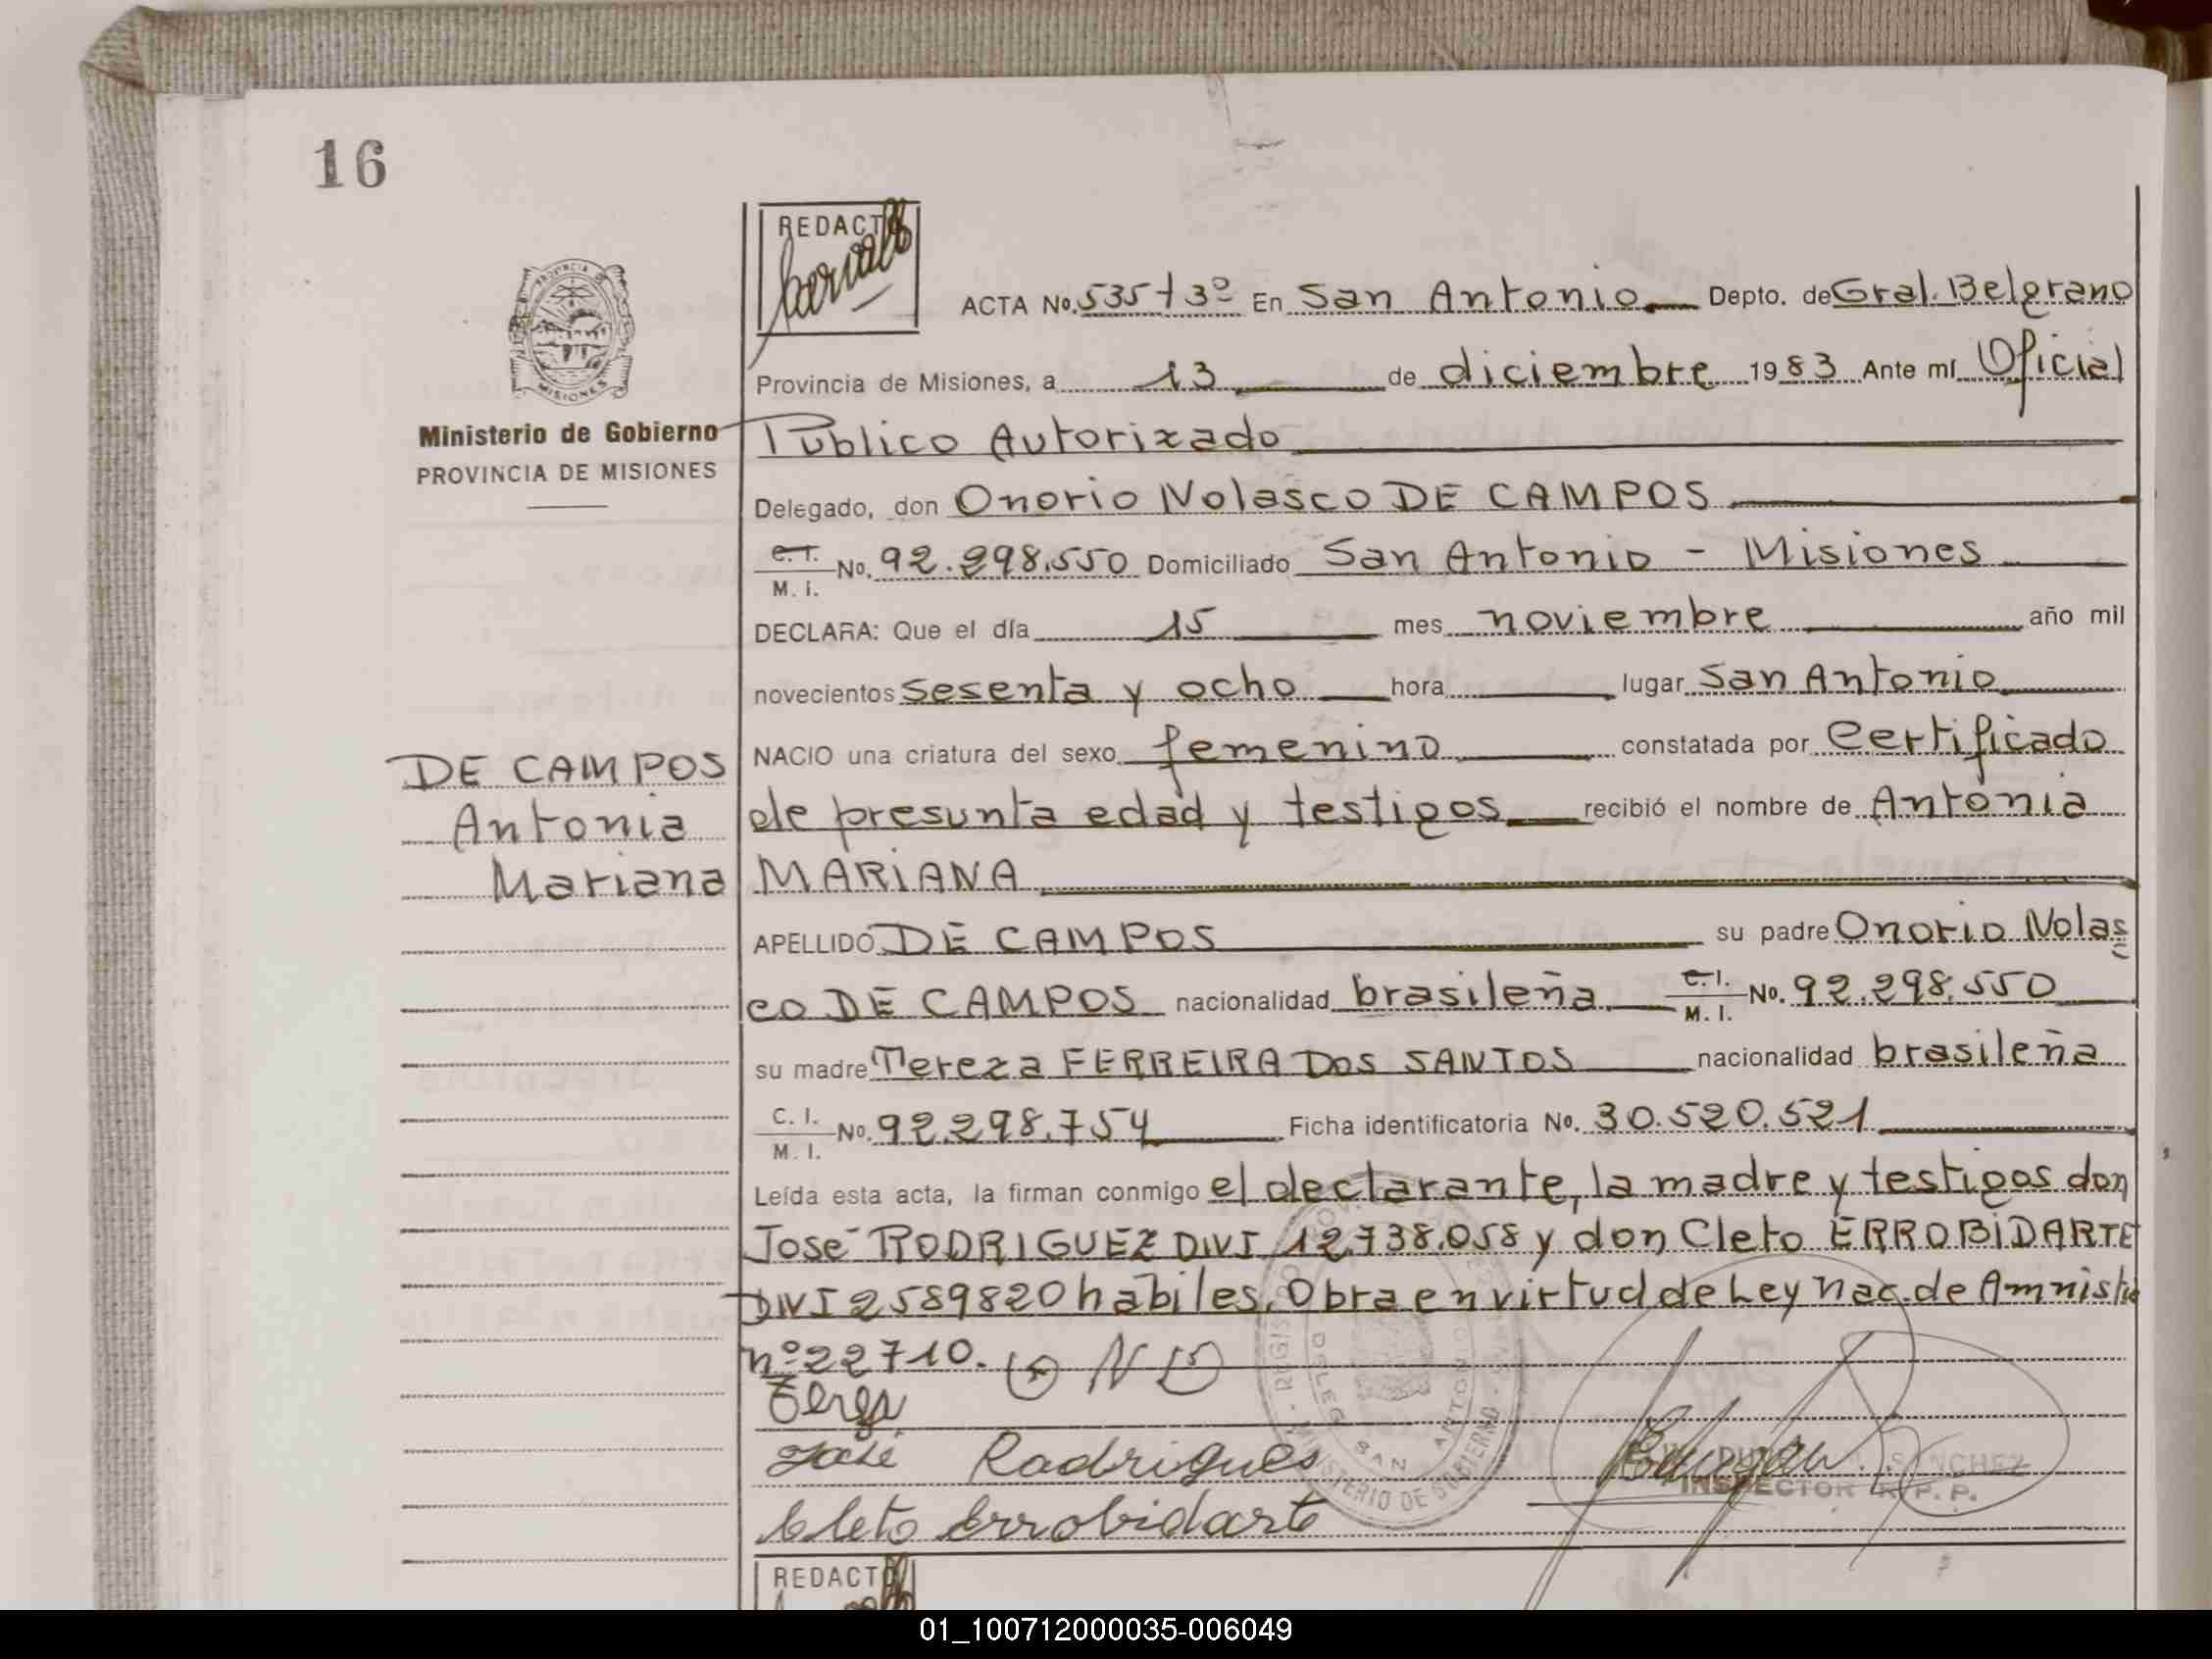 16
REDACTO
ACTA No. 535 T 3º En San Antonio Depto. de Gral. Belgrano
Provincia de Misiones, a 13 de diciembre 1983 Ante mí Oficial
Ministerio de Gobierno
PROVINCIA DE MISIONES
Público Autorizado
Delegado, don Onorio Nolasco DE CAMPOS
C.I. M. I. No. 92.298.550 Domiciliado San Antonio - Misiones
DECLARA: Que el día 15 mes noviembre año mil
novecientos sesenta y ocho hora lugar San Antonio
NACIO una criatura del sexo femenino constatada por Certificado
de presunta edad y testigos recibió el nombre de Antonia
MARIANA
DE CAMPOS
Antonia
Mariana
APELLIDO DE CAMPOS su padre Onorio Nolas
co DE CAMPOS nacionalidad brasileña C.I. M. I. No. 92.298.550
su madre Tereza FERREIRA DOS SANTOS nacionalidad brasileña
C. I. M. I. No. 92.298.754 Ficha identificatoria No. 30.520.521
Leída esta acta, la firman conmigo el declarante, la madre y testigos don
José RODRIGUEZ DNI 12.738.058 y don Cleto ERROBIDARTE
DNI 2589820 habiles. Obra en virtud de Ley Nac. de Amnistia
nº 22710.
José Rodrigues
Cleto Errobidarte
DELEG. SAN ANTONIO
MINISTERIO DE GOBIERNO
SANCHEZ
INSPECTOR R. P. P.
REDACTO
01_100712000035-006049